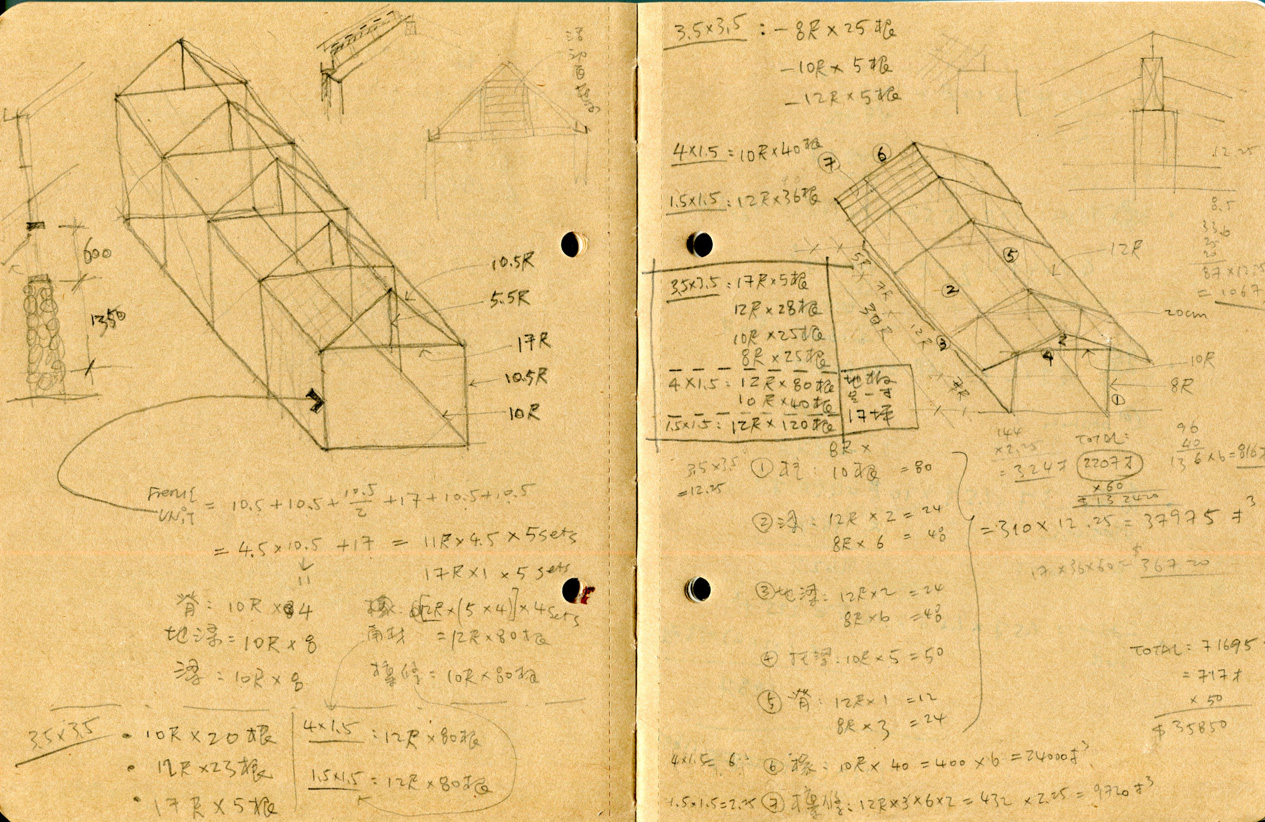 600
1350
10.5R
5.5R
17R
10.5R
10R
FRAME UNIT = 10.5 + 10.5 + 10.5/2 + 17 + 10.5 + 10.5
= 4.5 × 10.5 + 17 = 11R × 4.5 × 5 sets
11
17R × 1 × 5 sets
脊: 10R × 4
地梁 = 10R × 8
梁: 10R × 8
椽: [12R × (5 × 4)] × 4 sets
角材 = 12R × 80根
= 10R × 80根
3.5 × 3.5
• 10R × 20根
• 12R × 23根
• 17R × 5根
4 × 1.5 : 12R × 80根
1.5 × 1.5 : 12R × 80根
3.5 × 3.5 : - 8R × 25根
- 10R × 5根
- 12R × 5根
4 × 1.5 = 10R × 40根
1.5 × 1.5 : 12R × 36根
⑦
⑥
⑤
②
③
④
①
12R
20cm
10R
8R
12R
7R
12.25
8.5
87 × 12.25
= 1067
3.5 × 3.5 : 17R × 5根
12R × 28根
10R × 25根
8R × 25根
4 × 1.5 : 12R × 80根
10R × 40根
1.5 × 1.5 : 12R × 120根
地板
17坪
3.5 × 3.5
= 12.25
8R ×
① 柱: 10根 = 80
② 梁: 12R × 2 = 24
8R × 6 = 48
③ 地梁: 12R × 2 = 24
8R × 6 = 48
④ 托梁: 10R × 5 = 50
⑤ 脊: 12R × 1 = 12
8R × 3 = 24
= 310 × 12.25 = 37975 才³
144
× 2.25
= 324才
TOTAL:
2207才
× 60
$ 132420
96
40
136 × 6 = 816
17 × 36 × 60 = $ 36720
TOTAL = 71695
= 717才
× 50
$ 35850
4 × 1.5 = 6 ⑥ 椽: 10R × 40 = 400 × 6 = 24000才³
1.5 × 1.5 = 2.25 ⑦ 12R × 3 × 6 × 2 = 432 × 2.25 = 9720才³